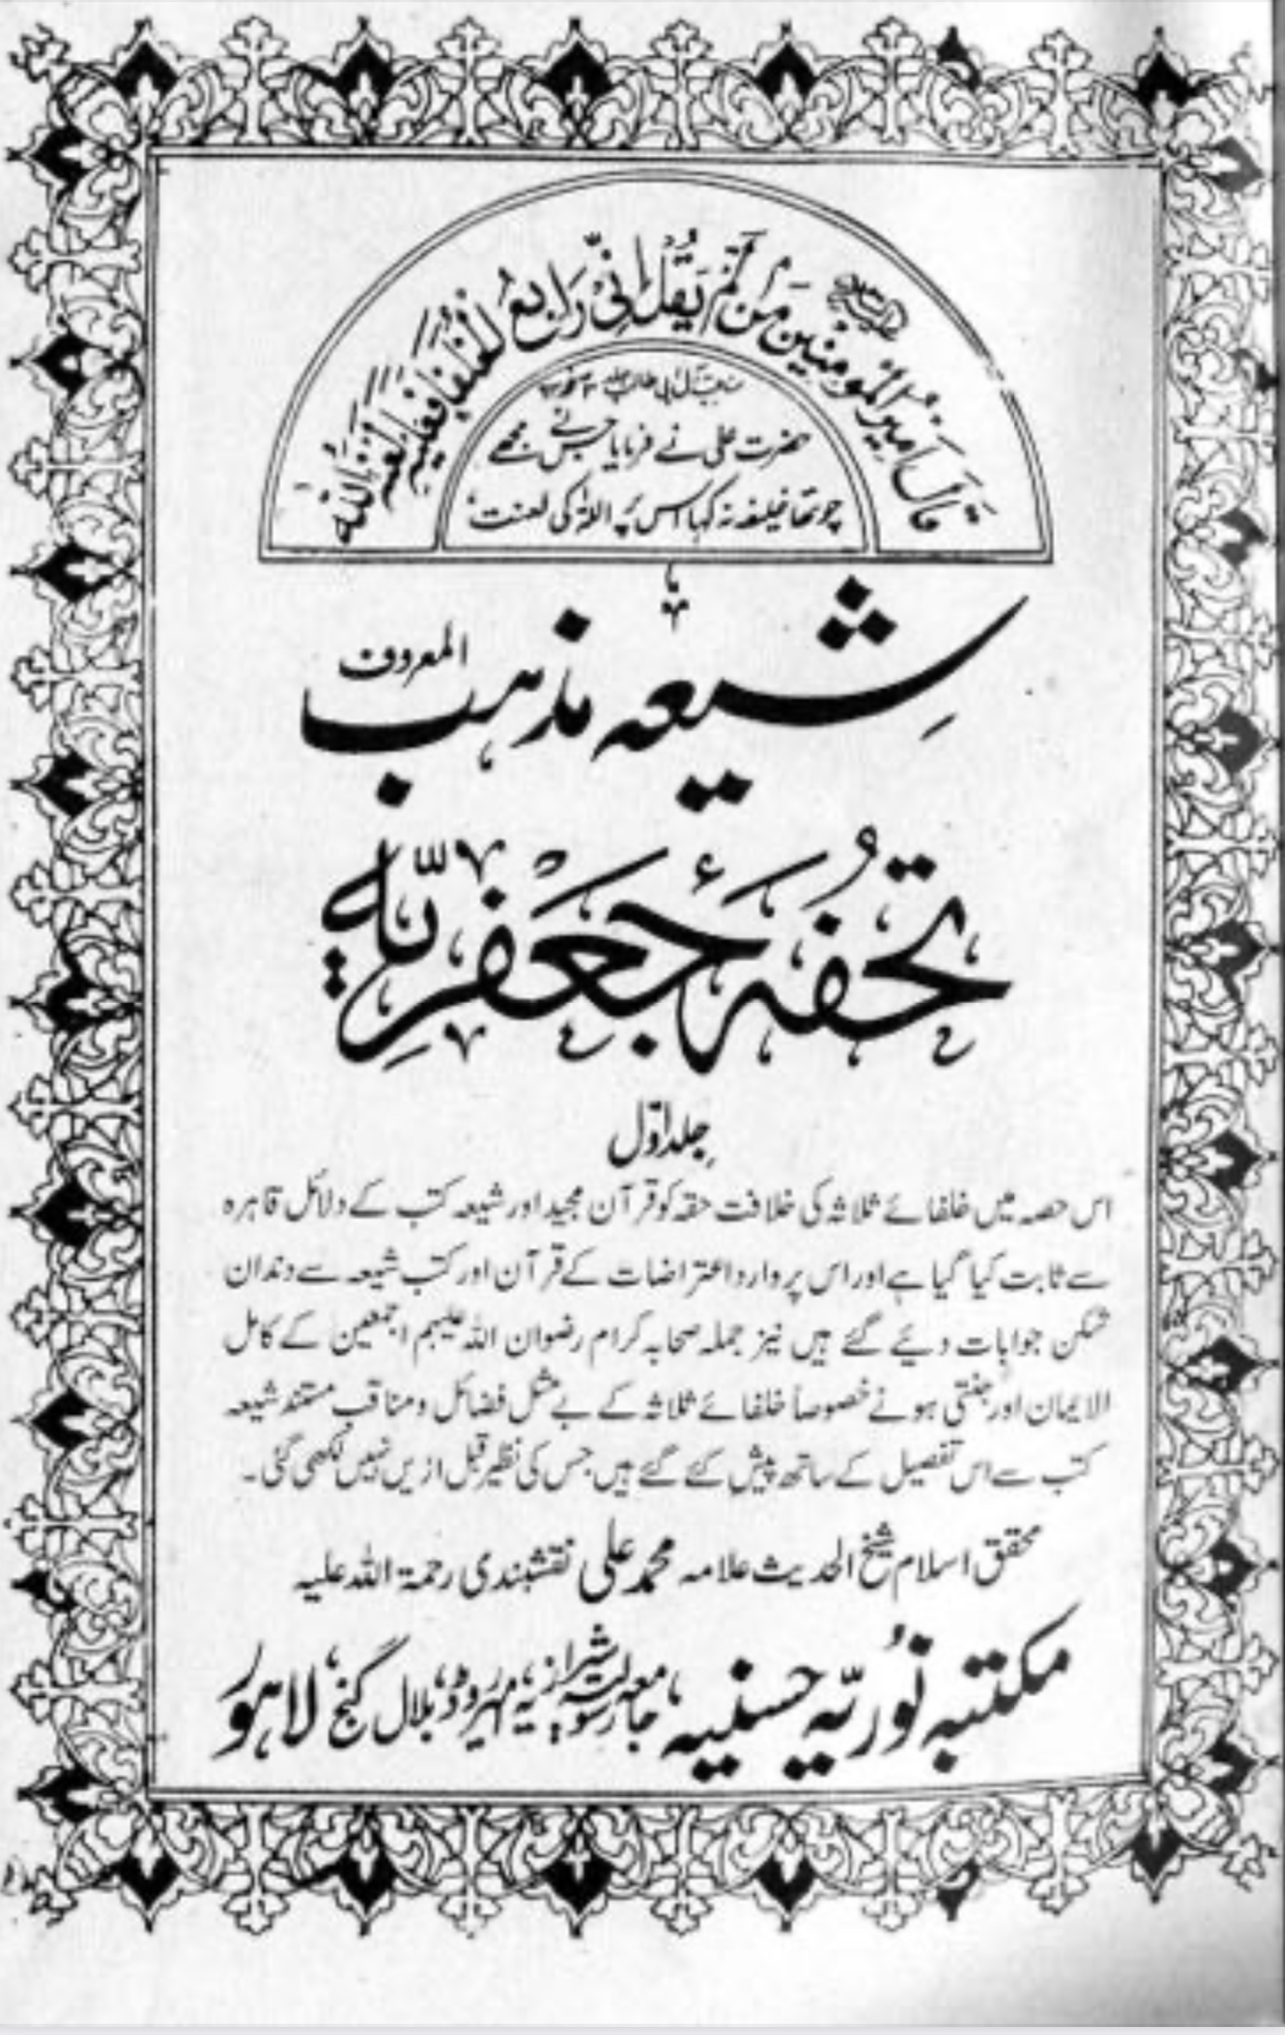 قَالَ اَمِيْرُ الْمُؤْمِنِيْنَ مَنْ لَّمْ يَقُلْ اِنِّيْ رَابِعُ الْخُلَفَاءِ فَعَلَيْهِ لَعْنَةُ اللهِ
حضرت علی نے فرمایا جس نے مجھے
چوتھا خلیفہ نہ کہا اس پہ اللہ کی لعنت،
شیعہ مذہب المعروف
تحفۂ جعفریہ
جلد اوّل
اس حصہ میں خلفائے ثلاثہ کی خلافت حقہ کو قرآن مجید اور شیعہ کتب کے دلائل قاہرہ
سے ثابت کیا گیا ہے اور اس پر وارد اعتراضات کے قرآن اور کتب شیعہ سے دندان
شکن جوابات دیئے گئے ہیں نیز جملہ صحابہ کرام رضوان اللہ علیہم اجمعین کے کامل
الایمان اور جنتی ہونے خصوصاً خلفائے ثلاثہ کے بے مثل فضائل و مناقب مستند شیعہ
کتب سے اس تفصیل کے ساتھ پیش کئے گئے ہیں جس کی نظیر قبل ازیں نہیں لکھی گئی۔
محقق اسلام شیخ الحدیث علامہ محمد علی نقشبندی رحمۃ اللہ علیہ
مکتبہ نُوریّہ حسنیہ جامعہ رسولیہ شیرازیہ، مہر روڈ، بلال گنج، لاہور